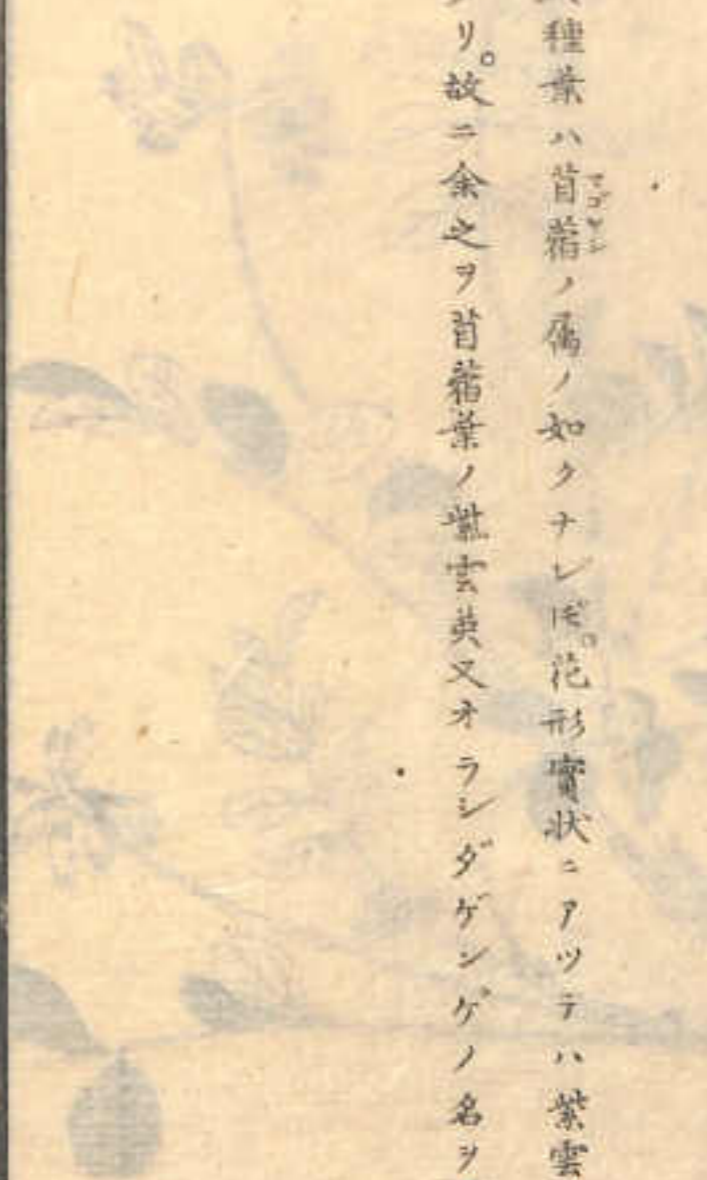 種葉ハ苜蓿マゴヤシノ属ノ如クナレ𪜈。花形實狀ニアツテハ紫雲
リ。故ニ余之ヲ苜蓿葉ノ紫雲英又オランダゲンゲノ名ヲ